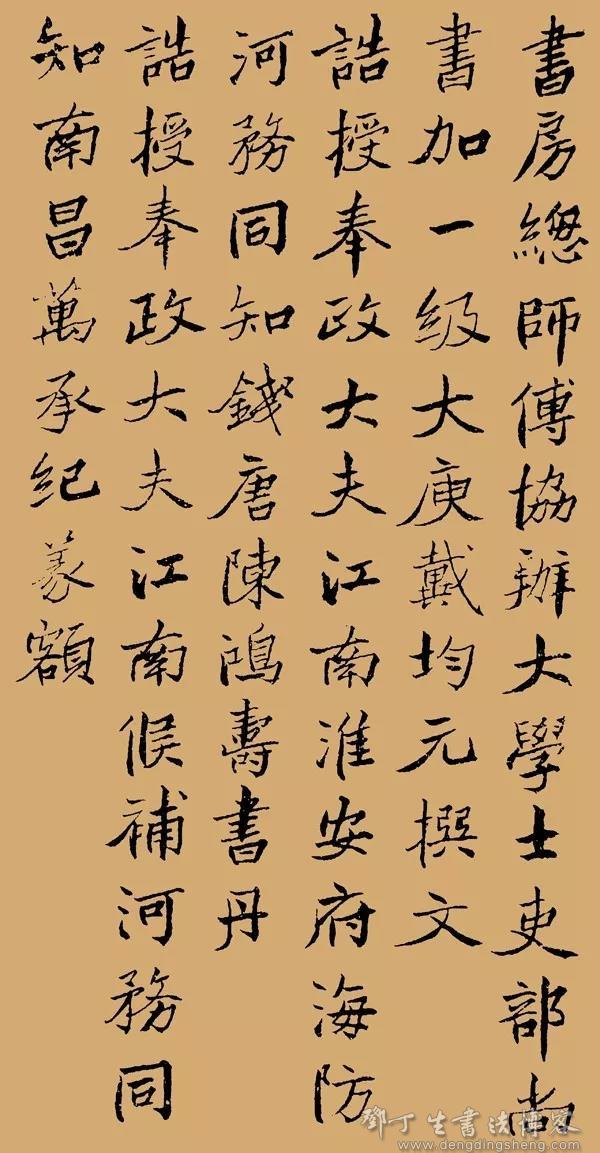 書房緫師傅協辦大學士吏部尚
書加一级大庾戴均元撰文
誥授奉政大夫江南淮安府海防
河務同知錢唐陳鴻壽書丹
誥授奉政大夫江南候補河務同
知南昌萬承紀篆額
鄧丁生書法博客
www.dengdingsheng.com